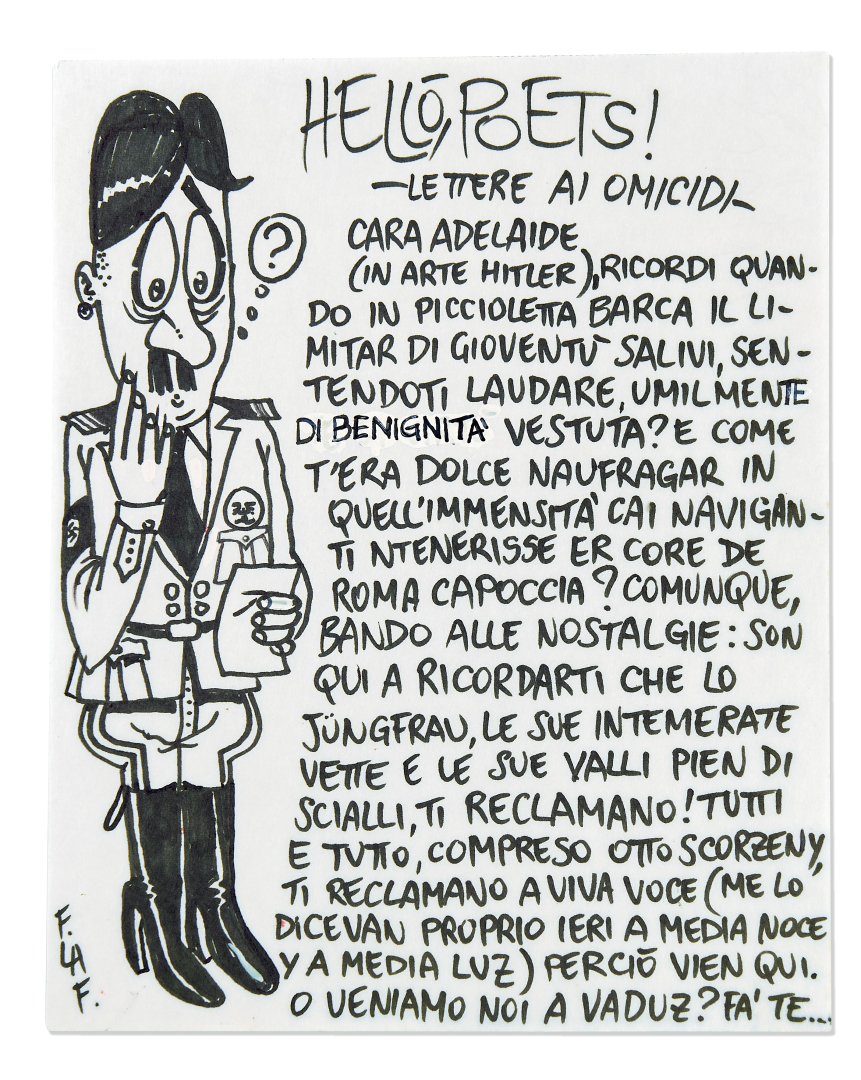 HELLŌ, POETS!
—LETTERE AI OMICIDI—
CARA ADELAIDE
(IN ARTE HITLER), RICORDI QUAN-
DO IN PICCIOLETTA BARCA IL LI-
MITAR DI GIOVENTU` SALIVI, SEN-
TENDOTI LAUDARE, UMILMENTE
DI BENIGNITA' VESTUTA? E COME
T'ERA DOLCE NAUFRAGAR IN
QUELL'IMMENSITA' CAI NAVIGAN-
TI NTENERISSE ER CORE DE
ROMA CAPOCCIA? COMUNQUE,
BANDO ALLE NOSTALGIE: SON
QUI A RICORDARTI CHE LO
JÜNGFRAU, LE SUE INTEMERATE
VETTE E LE SUE VALLI PIEN DI
SCIALLI, TI RECLAMANO! TUTTI
E TUTTO, COMPRESO OTTO SCORZENY,
TI RECLAMANO A VIVA VOCE (ME LO
DICEVAN PROPRIO IERI A MEDIA NOCE
Y A MEDIA LUZ) PERCIŌ VIEN QUI.
O VENIAMO NOI A VADUZ? FA' TE...
?
F.
LA
F.